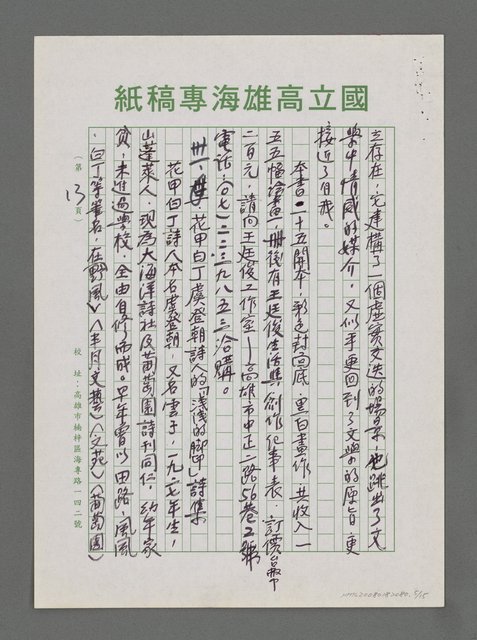 國立高雄海專稿紙
立存在，它建構了一個虛實交迭的場景，也跳出了文
學中情感的媒介，又似乎更回到了文學的原旨，更
接近了自我。
本書二十五開本，彩色封面底，黑白畫作共收入一
五五幅繪畫，冊後有王廷俊生活與創作紀事表，訂價台幣
二百元，請向王廷俊工作室—高雄市中正二路56巷2號
電話：（〇七）二二三九八五三洽購。
卅一、花甲白丁虞登朝詩人的「淺淺的腳印」詩集
花甲白丁詩人本名虞登朝，又名雲子，一九二七年生，
山東蓬萊人，現為大海洋詩社及葡萄園詩刊同仁，幼年家
貧，未進過學校，全由自修而成。早年曾以田路、風風
、白丁等筆名，在《野風》《半月文藝》《文苑》《葡萄園》
（第13頁）
校址：高雄市楠梓區海專路一四二號